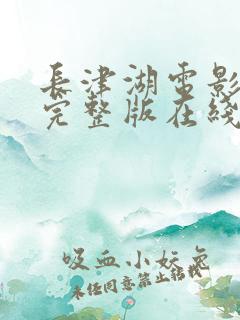 長津湖電影
完整版在綫
吸血小妖兔
未经同意禁止转载